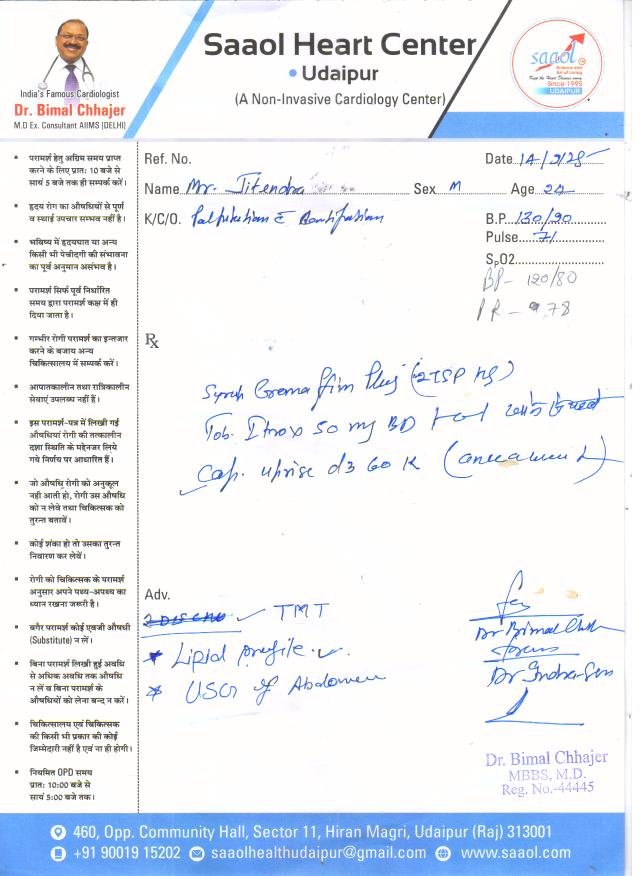 Saaol Heart Center
• Udaipur
(A Non-Invasive Cardiology Center)
India's Famous Cardiologist
Dr. Bimal Chhajer
M.D Ex. Consultant AIIMS (DELHI)
saaol
Science and
Art of Living
Since 1995
UDAIPUR
Ref. No.
Date 14/9/25
Name Mr. Jitendra Sex M Age
K/C/O. Palpitation
B.P. 130/90
Pulse 71
SpO2
BP - 120/80
PR - 78
Rx
Syrup Cremaffin Plus (2TSP HS)
Tab. 50 mg BD
Cap. uprise d3 60 K
Adv.
TMT
* Lipid profile
* USG of Abdomen
Dr Bimal
Dr Indra
Dr. Bimal Chhajer
MBBS, M.D.
Reg. No.-44445
▪ परामर्श हेतु अग्रिम समय प्राप्त
करने के लिए प्रात: 10 बजे से
सायं 5 बजे तक ही सम्पर्क करें।
▪ हृदय रोग का औषधियों से पूर्ण
व स्थाई उपचार सम्भव नहीं है।
▪ भविष्य में हृदयघात या अन्य
किसी भी पेचीदगी की संभावना
का पूर्व अनुमान असंभव है।
▪ परामर्श सिर्फ पूर्व निर्धारित
समय द्वारा परामर्श कक्ष में ही
दिया जाता है।
▪ गम्भीर रोगी परामर्श का इन्तजार
करने के बजाय अन्य
चिकित्सालय में सम्पर्क करें।
▪ आपातकालीन तथा रात्रिकालीन
सेवाएं उपलब्ध नहीं हैं।
▪ इस परामर्श-पत्र में लिखी गई
औषधियां रोगी की तत्कालीन
दशा स्थिति के मद्देनजर लिये
गये निर्णय पर आधारित हैं।
▪ जो औषधि रोगी को अनुकूल
नही आती हो, रोगी उस औषधि
को न लेवे तथा चिकित्सक को
तुरन्त बतावें।
▪ कोई शंका हो तो उसका तुरन्त
निवारण कर लेवें।
▪ रोगी को चिकित्सक के परामर्श
अनुसार अपने पथ्य-अपथ्य का
ध्यान रखना जरूरी है।
▪ बगैर परामर्श कोई एवजी औषधी
(Substitute) न लें।
▪ बिना परामर्श लिखी हुई अवधि
से अधिक अवधि तक औषधि
न लें व बिना परामर्श के
औषधियों को लेना बन्द न करें।
▪ चिकित्सालय एवं चिकित्सक
की किसी भी प्रकार की कोई
जिम्मेदारी नहीं है एवं ना ही होगी।
▪ नियमित OPD समय
प्रात: 10:00 बजे से
सायं 5:00 बजे तक।
460, Opp. Community Hall, Sector 11, Hiran Magri, Udaipur (Raj) 313001
+91 90019 15202 saaolhealthudaipur@gmail.com www.saaol.com